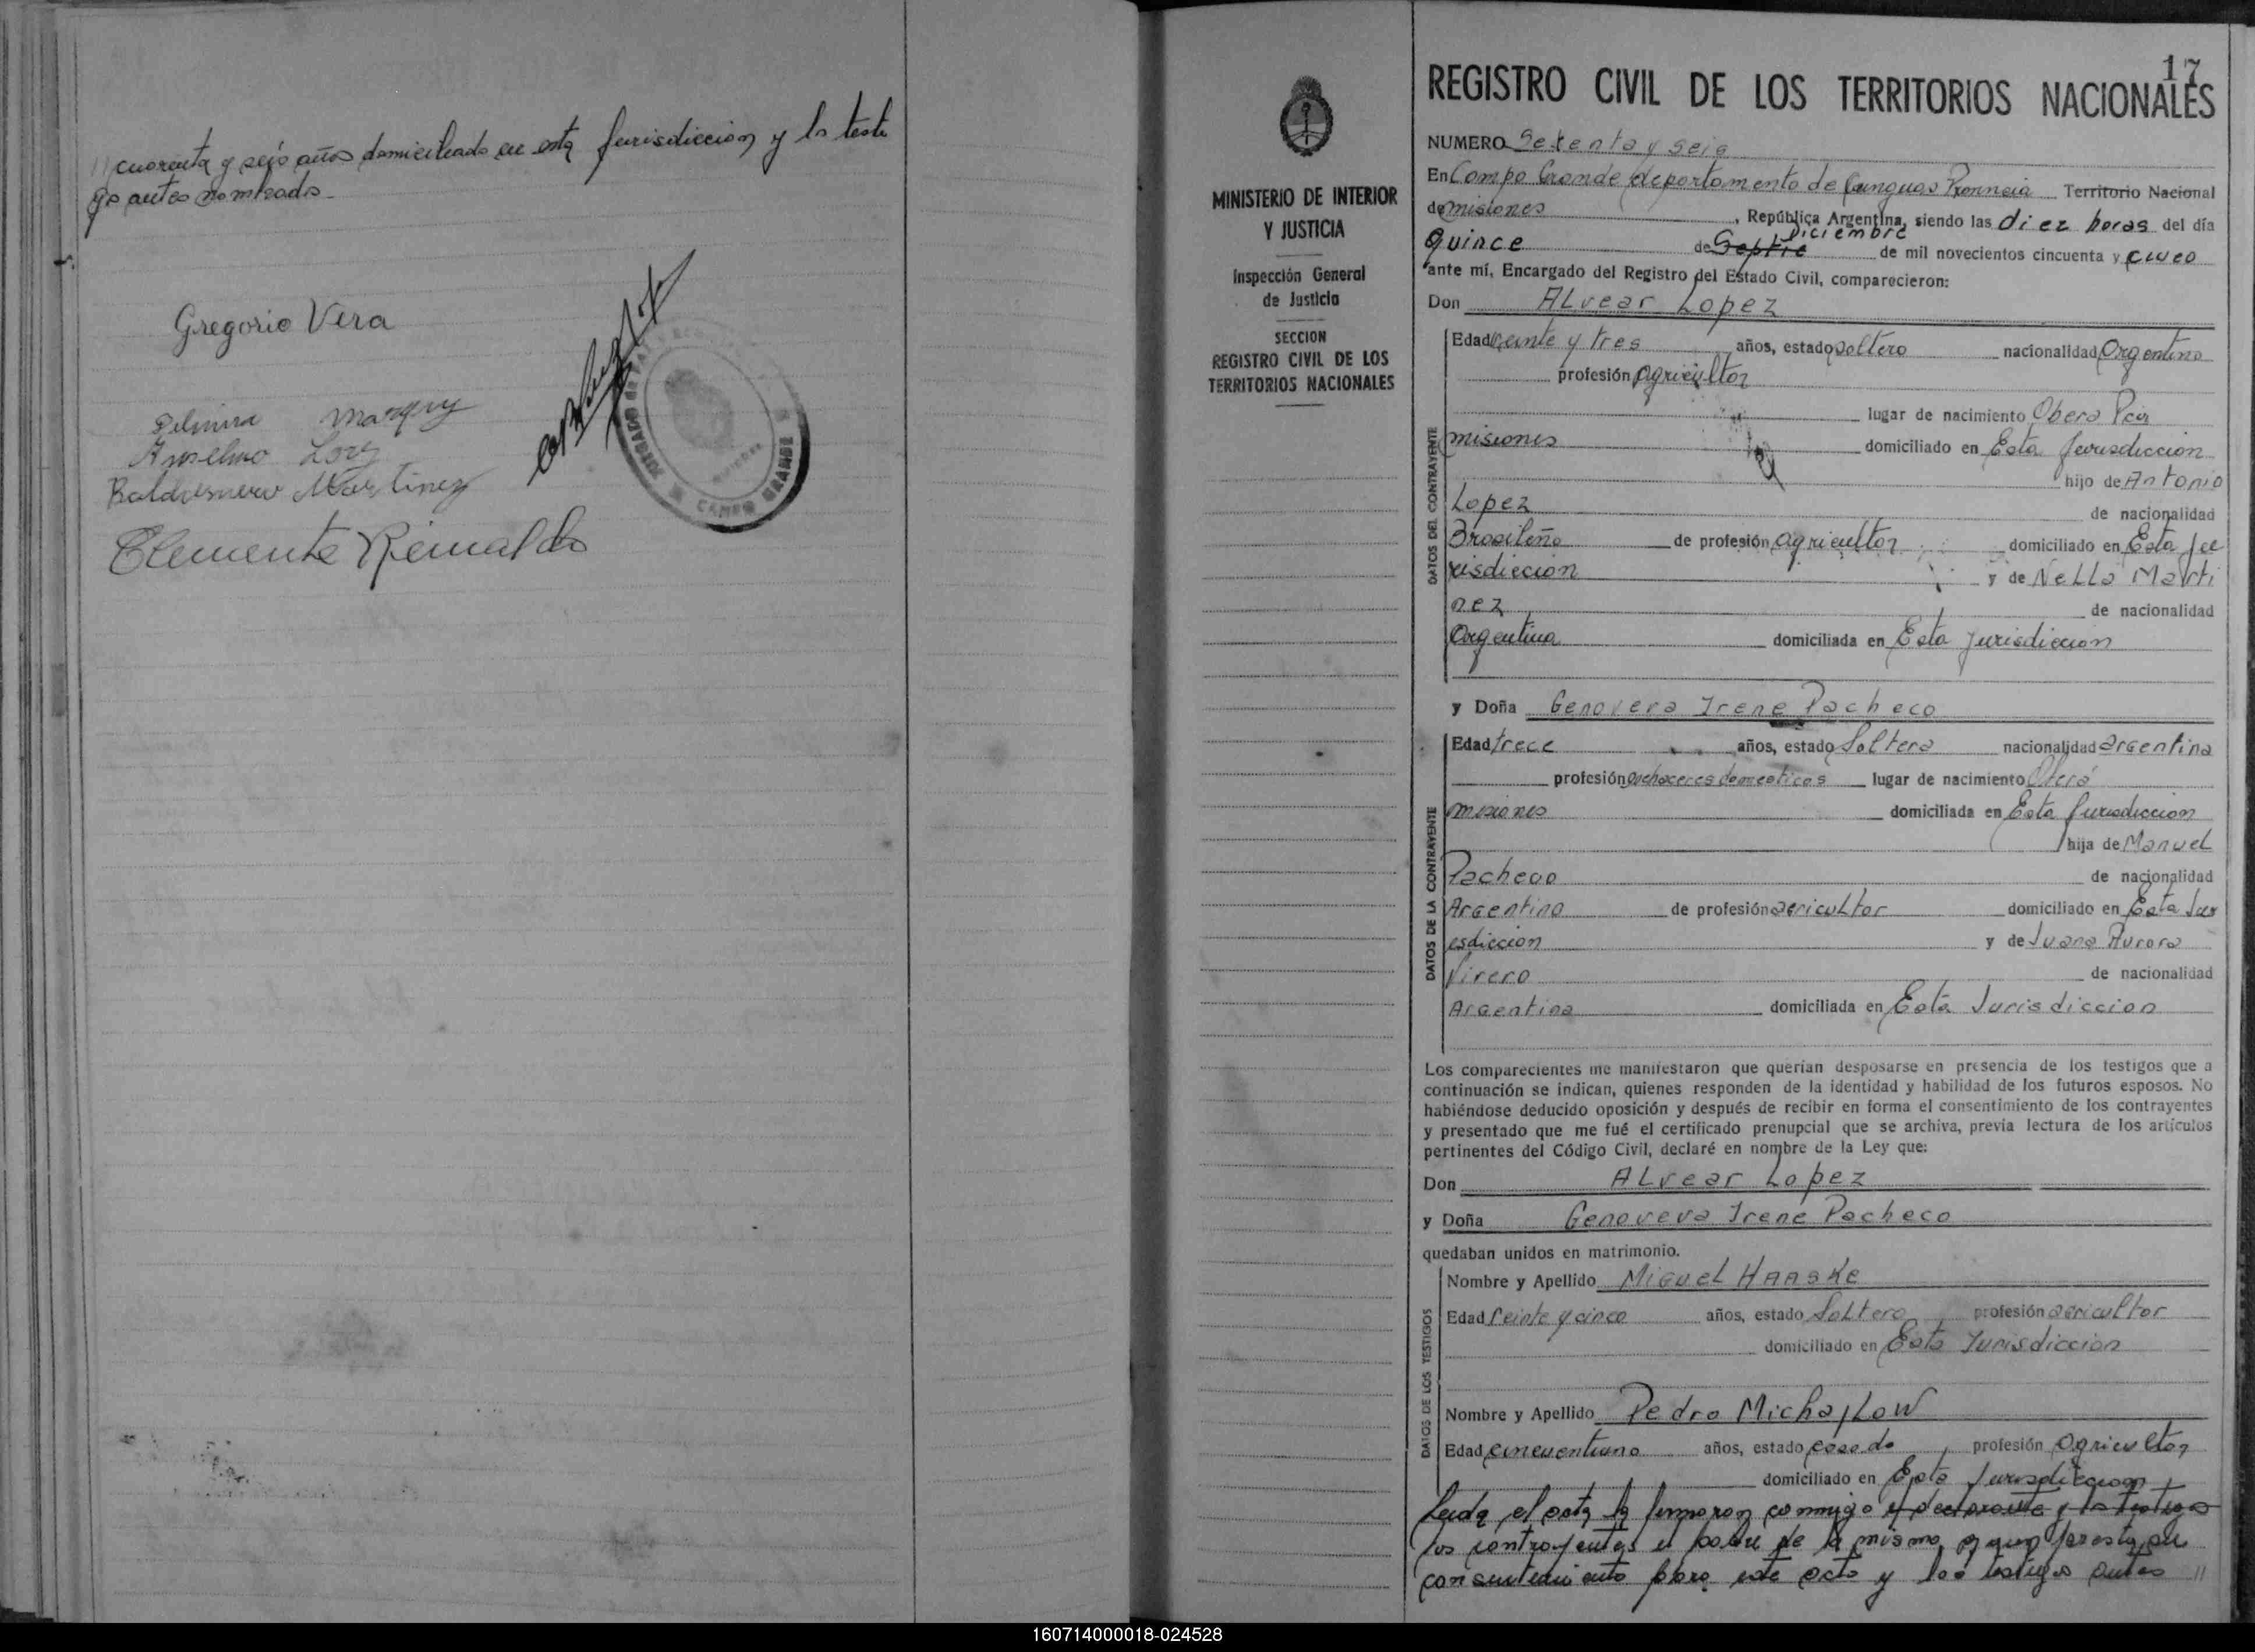 // cuarenta y seis años domiciliado en esta jurisdiccion y lo testi
go antes nombrado.
Gregorio Vera
Anselmo
Baldomero Martinez
Clemente Reinaldo
JUZGADO DE PAZ
CAMPO GRANDE
MISIONES
MINISTERIO DE INTERIOR
Y JUSTICIA
Inspección General
de Justicia
SECCION
REGISTRO CIVIL DE LOS
TERRITORIOS NACIONALES
17
REGISTRO CIVIL DE LOS TERRITORIOS NACIONALES
NUMERO Setenta y seis
En Campo Grande departamento de Cainguas Provincia Territorio Nacional
de misiones, República Argentina, siendo las diez horas del día
quince de Septie Diciembre de mil novecientos cincuenta y cinco
ante mí, Encargado del Registro del Estado Civil, comparecieron:
Don ALvear Lopez
DATOS DEL CONTRAYENTE
Edad veinte y tres años, estado soltero nacionalidad Argentino
profesión agricultor
lugar de nacimiento Obera
misiones domiciliado en Esta jurisdiccion
hijo de Antonio
Lopez de nacionalidad
Brasileño de profesión agricultor domiciliado en Esta ju
risdiccion y de NeLLa Marti
nez de nacionalidad
Argentina domiciliada en Esta jurisdiccion
y Doña Genoveva Irene Pacheco
DATOS DE LA CONTRAYENTE
Edad trece años, estado Soltera nacionalidad argentina
profesión quehaceres domesticos lugar de nacimiento Oberá
misiones domiciliada en Esta jurisdiccion
hija de Manuel
Pacheco de nacionalidad
Argentino de profesión agricultor domiciliado en Esta Jur
esdiccion y de Juana Aurora
Virero de nacionalidad
Argentina domiciliada en Esta Jurisdiccion
Los comparecientes me manifestaron que querían desposarse en presencia de los testigos que a
continuación se indican, quienes responden de la identidad y habilidad de los futuros esposos. No
habiéndose deducido oposición y después de recibir en forma el consentimiento de los contrayentes
y presentado que me fué el certificado prenupcial que se archiva, previa lectura de los artículos
pertinentes del Código Civil, declaré en nombre de la Ley que:
Don ALvear Lopez
y Doña Genoveva Irene Pacheco
quedaban unidos en matrimonio.
DATOS DE LOS TESTIGOS
Nombre y Apellido MiGueL HAASKe
Edad veinte y cinco años, estado SoLtero profesión agricultor
domiciliado en Esta Jurisdiccion
Nombre y Apellido Pedro MichajLow
Edad cincuentiuno años, estado casado, profesión agricultor
domiciliado en Esta jurisdiccion
Leida el acta la firmaron conmigo el declarante y los testigos
los contrayentes el padre de la misma quien presta su
consentimiento para este acto y los testigos antes //
160714000018-024528